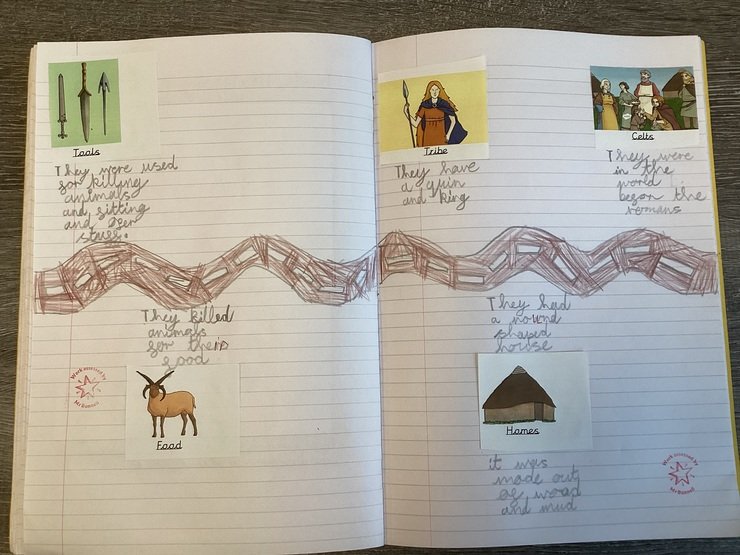 Tools
They were used
for killing
animals
and fitting
and
stuff.
Tribe
They have
a quin
and king
Celts
They were
in the
world
the
romans
They killed
animals
for their
food
Food
Work assessed by
They had
a round
shaped
house
Homes
it was
made out
of wood
and mud
Work assessed by